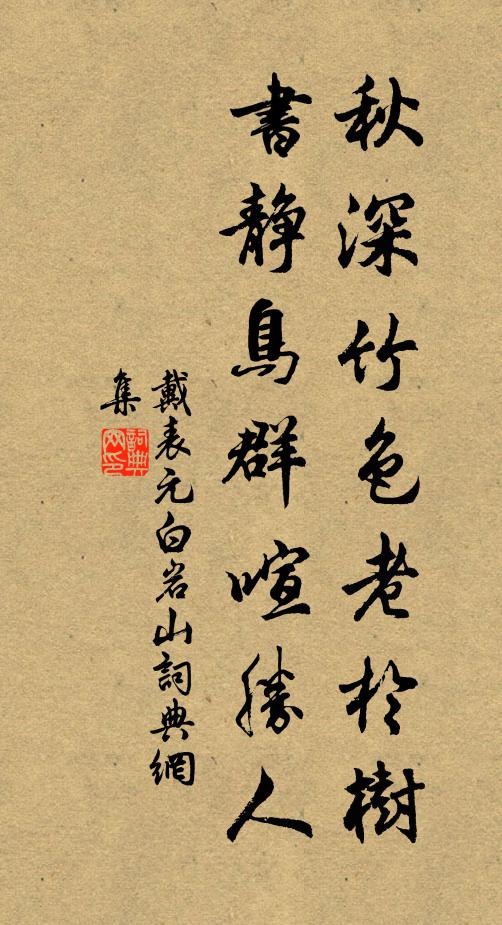 秋深竹色老於樹
書静鳥群喧勝人
戴表元白岩山詞典網
集
詞典网印